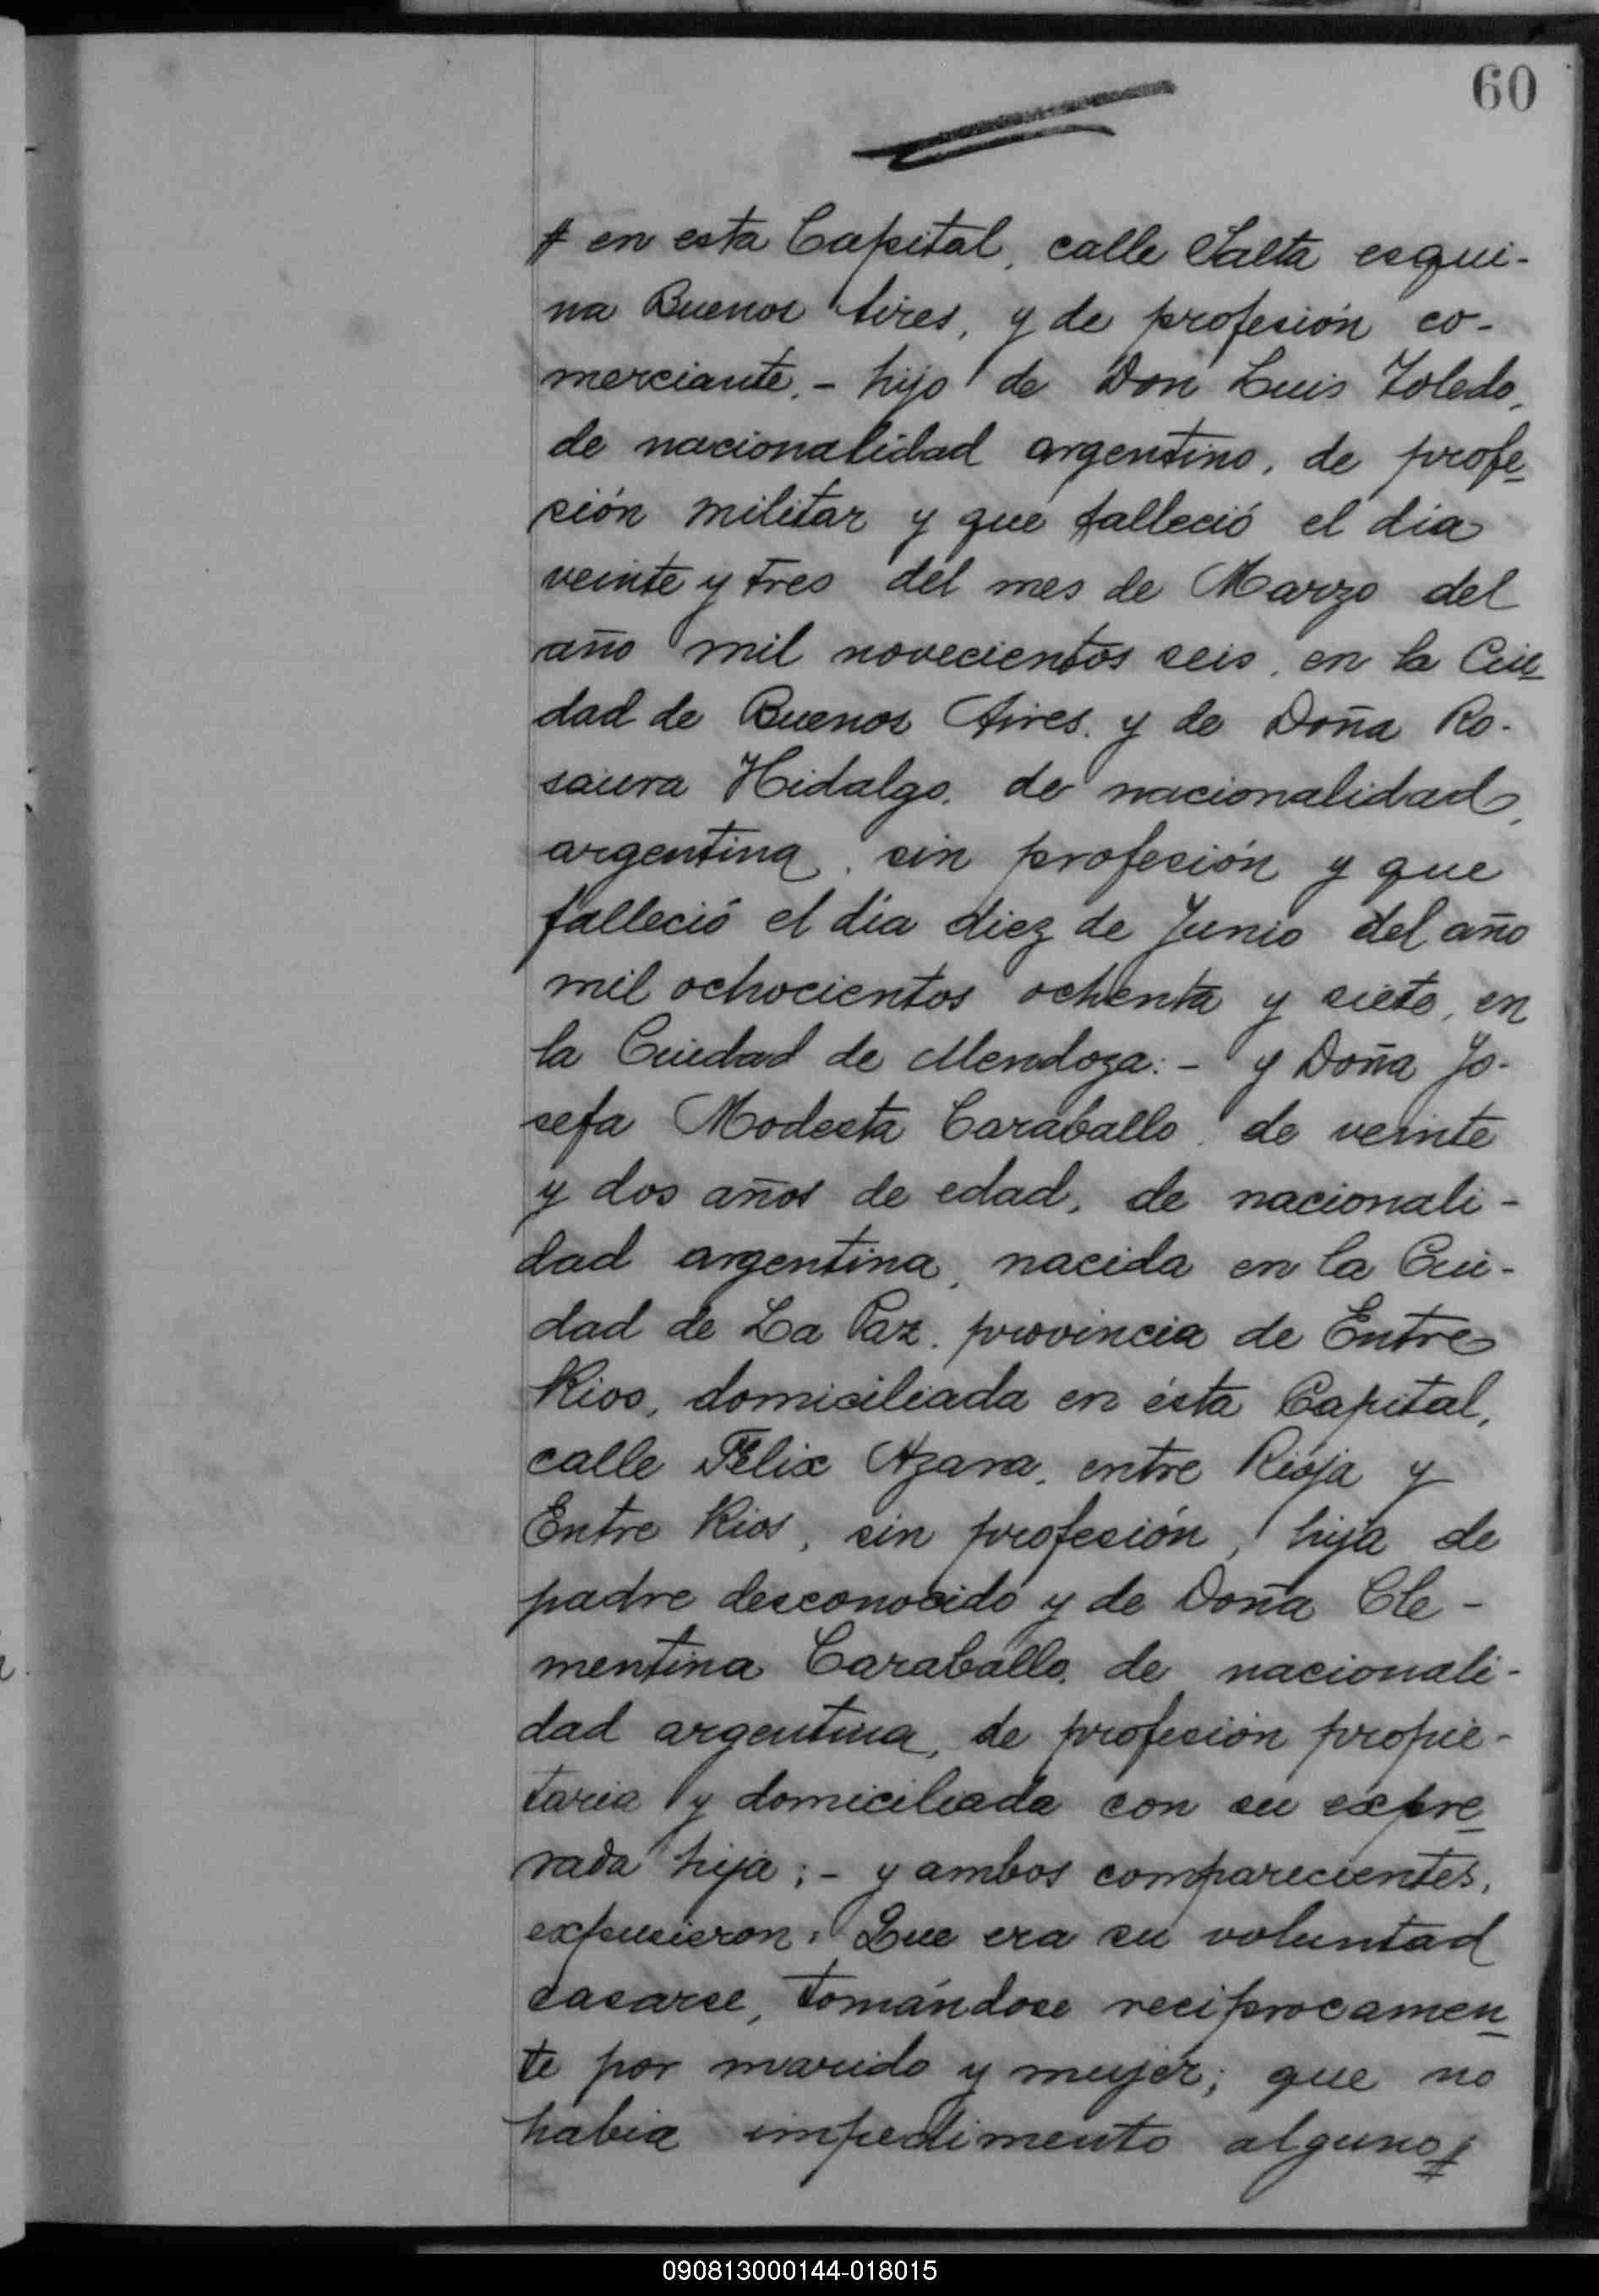 60
# en esta Capital, calle Salta esqui-
na Buenos Aires, y de profesión co-
merciante. - hijo de Don Luis Toledo,
de nacionalidad argentino, de profe-
sión militar y que falleció el dia
veinte y tres del mes de Marzo del
año mil novecientos seis, en la Ciu-
dad de Buenos Aires. y de Doña Ro-
saura Hidalgo, de nacionalidad,
argentina, sin profesión y que
falleció el día diez de Junio del año
mil ochocientos ochenta y siete, en
la Ciudad de Mendoza: - y Doña Jo-
sefa Modesta Caraballo, de veinte
y dos años de edad, de nacionali-
dad argentina, nacida en la Ciu-
dad de La Paz, provincia de Entre
Rios, domiciliada en ésta Capital,
calle Félix Azara, entre Rioja y
Entre Rios, sin profesión, hija de
padre desconocido y de Doña Cle-
mentina Caraballo, de nacionali-
dad argentina, de profesión propie-
taria y domiciliada con su expre-
sada hija; - y ambos comparecientes,
expusieron: Que era su voluntad
casarse, tomándose reciprocamen-
te por marido y mujer; que no
habia impedimento alguno #
090813000144-018015